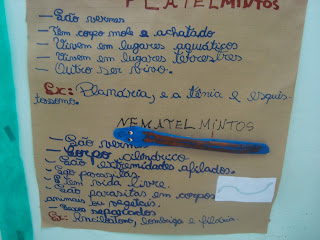 PLATELMINTOS
— São vermes
— Têm corpo mole e achatado
— Vivem em lugares aquáticos
— Vivem em lugares terrestres
— Outro ser vivo.
Ex: Planária, e a tênia e esquis-
tossomo.
NEMATELMINTOS
— São vermes
— Corpo cilíndrico
— São extremidades afilados.
— São parasitas
— Tem vida livre.
— São parasitas em corpos
animais ou vegetais.
— separados
Ex: lombriga e filária.